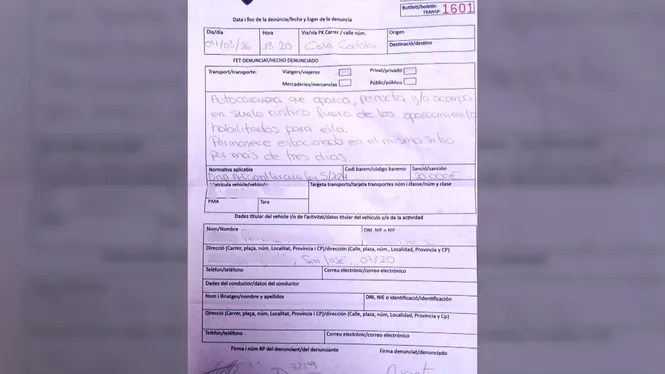 Butlletí/boletín
TRANSP. 1601
Data i lloc de la denúncia/fecha y lugar de la denuncia
Dia/día Hora Via/vía PK Carrer / calle núm. Origen
04/03/26 19 20 Cala
Destinació/destino
FET DENUNCIAT/HECHO DENUNCIADO
Transport/transporte: Viatgers/viajeros Privat/privado
Mercaderies/mercancías Públic/público
Autocaravana que aparca, pernocta y/o acampa
en suelo rústico fuera de los aparcamiento
habilitados para ello.
Permanece estacionada en el mismo sitio
por más de tres días.
Normativa aplicable Codi barem/código baremo Sanció/sanción
Ley 5/2024
Matrícula vehicle/vehículo Targeta transports/tarjeta transportes núm i classe/núm y clase
PMA Tara
Dades titular del vehicle i/o de l'activitat/datos titular del vehículo y/o de la actividad
Nom/Nombre DNI, NIE o NIF
Direcció (Carrer, plaça, núm, Localitat, Província i CP)/dirección (Calle, plaza, núm., Localidad, Provincia y CP)
San José 07820
Telèfon/teléfono Correu electrònic/correo electrónico
Dades del conductor/datos del conductor
Nom i llinatges/nombre y apellidos DNI, NIE o identificació/identificación
Direcció (Carrer, plaça, núm, Localitat, Província i CP)/dirección (Calle, plaza, núm, Localidad, Provincia y Cp)
Telèfon/teléfono Correu electrònic/correo electrónico
Firma i núm RP del denunciant/del denunciante Firma denunciat/denunciado